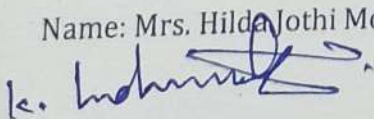 Name: Mrs. Hilda Jothi Mo
k.